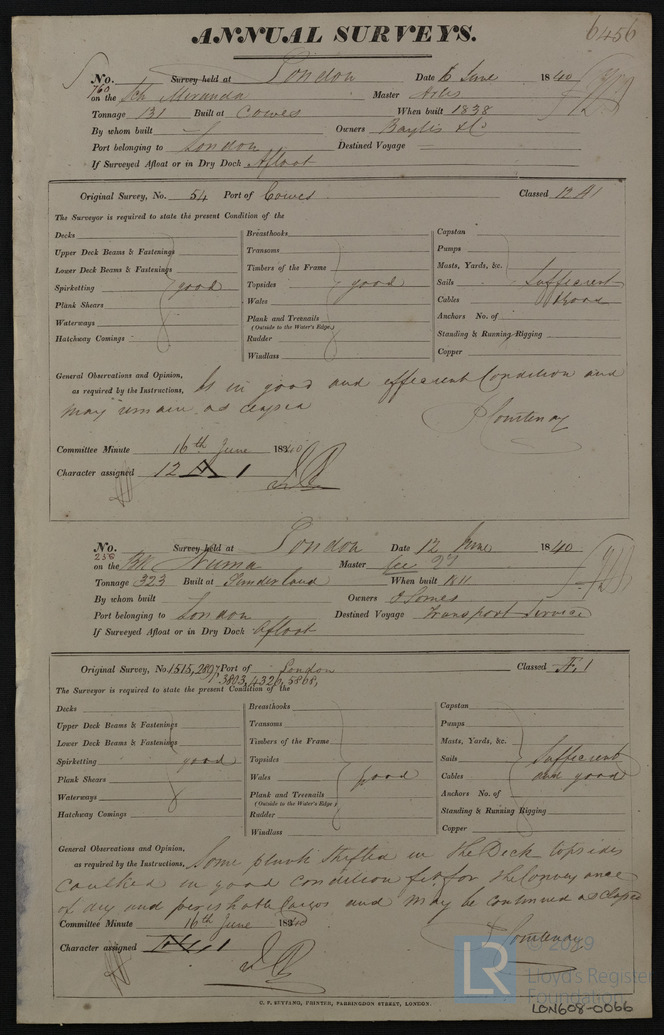 6456
ANNUAL SURVEYS.
No. 760 Survey held at London Date 6 June 1840
on the Sch Miranda Master
Tonnage 131 Built at Cowes When built 1838
By whom built Owners Baylis & Co
Port belonging to London Destined Voyage
If Surveyed Afloat or in Dry Dock Afloat
Original Survey, No. 54 Port of Cowes Classed 12 A1
The Surveyor is required to state the present Condition of the
Decks Breasthooks Capstan
Upper Deck Beams & Fastenings Transoms Pumps
Lower Deck Beams & Fastenings Timbers of the Frame Masts, Yards, &c.
Spirketting good Topsides good Sails Sufficient
Plank Shears Wales Cables & good
Waterways Plank and Treenails Anchors No. of
(Outside to the Water's Edge.) Standing & Running Rigging
Hatchway Comings Rudder
Windlass Copper
General Observations and Opinion,
as required by the Instructions, Is in good and efficient Condition and
may remain as classed
Courtenay
Committee Minute 16th June 1840
Character assigned 12 A 1
No. 256 Survey held at London Date 12 June 1840
on the Bk Numa Master
Tonnage 323 Built at Sunderland When built 1811
By whom built Owners J Somes
Port belonging to London Destined Voyage Transport Service
If Surveyed Afloat or in Dry Dock Afloat
Original Survey, No. 1515, 2897 Port of London Classed Æ 1
3803, 4326, 5868,
The Surveyor is required to state the present Condition of the
Decks Breasthooks Capstan
Upper Deck Beams & Fastenings Transoms Pumps
Lower Deck Beams & Fastenings Timbers of the Frame Masts, Yards, &c.
Spirketting good Topsides Sails Sufficient
Plank Shears Wales good Cables and good
Waterways Plank and Treenails Anchors No. of
(Outside to the Water's Edge.) Standing & Running Rigging
Hatchway Comings Rudder
Windlass Copper
General Observations and Opinion,
as required by the Instructions, Some plank shifted in the Deck topsides
caulked in good condition fit for the Conveyance
of dry and perishable Cargos and may be continued as classed
Courtenay
Committee Minute 16th June 1840
Character assigned Æ 1
C. F. SEYFANG, PRINTER, FARRINGDON STREET, LONDON.
LR
© 2019
Lloyd's Register
Foundation
LON608-0066